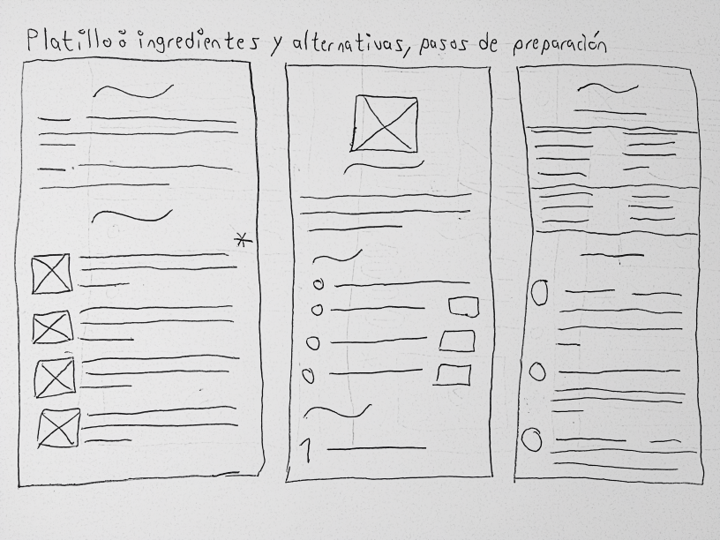 Platillo: ingredientes y alternativas, pasos de preparación
1